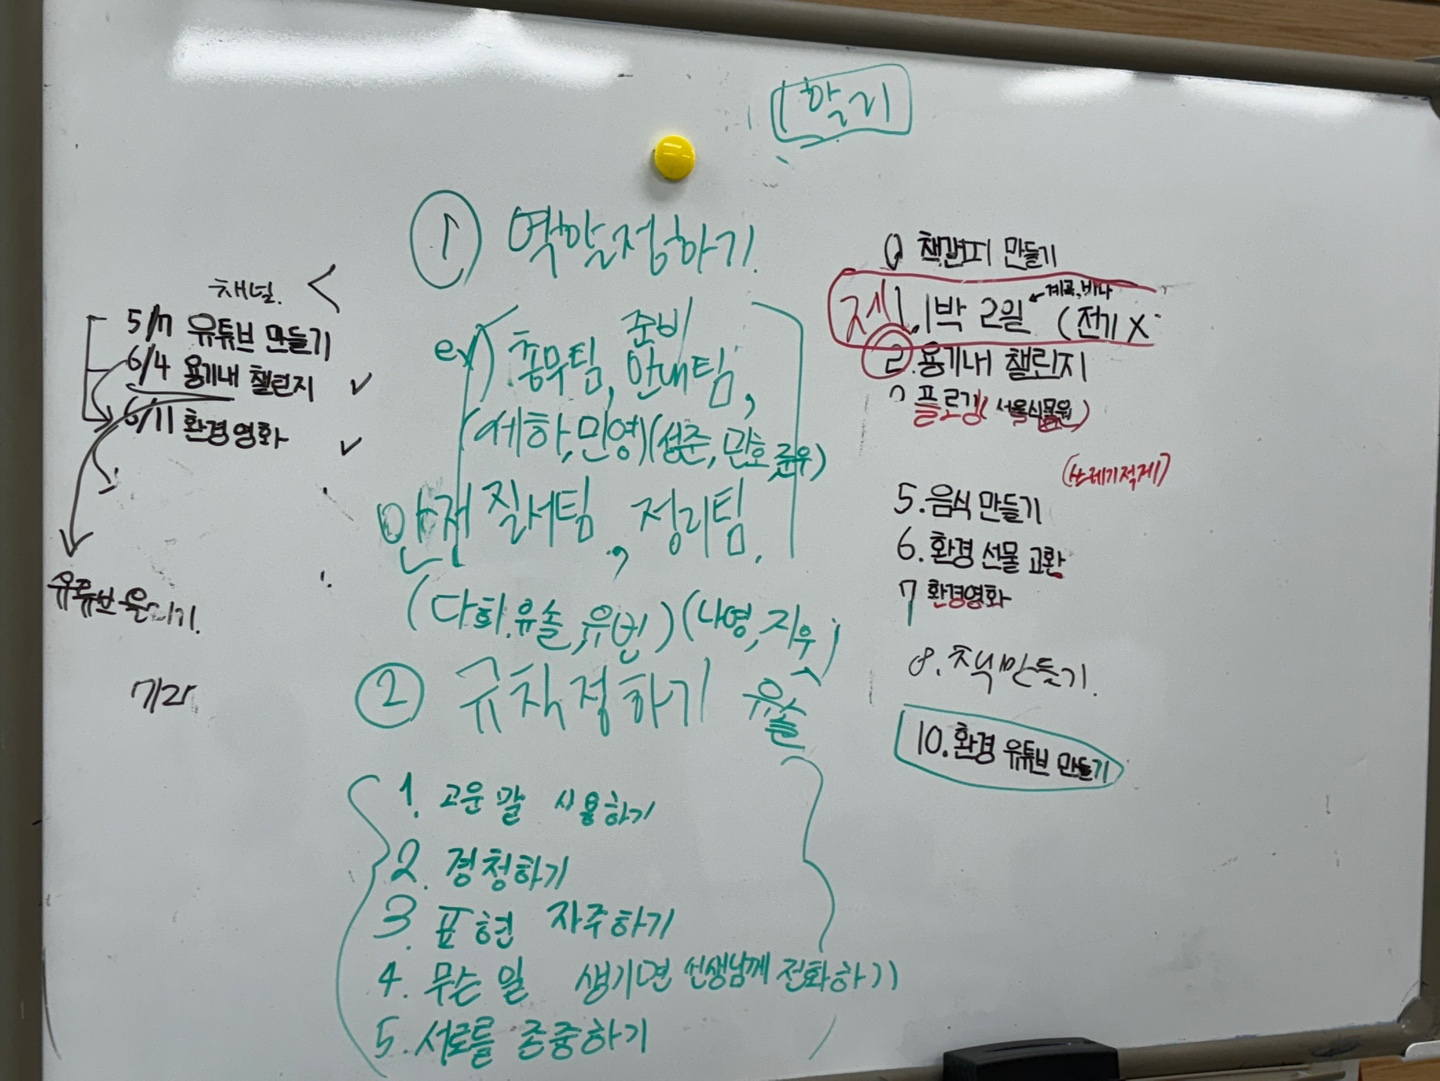 1학기
① 역할정하기
ex) 총무팀, 준비 안내팀,
(세하, 민영) (성준, 민호, 준우)
안전 질서팀, 정리팀.
(다희, 유솔, 유빈) (나영, 지우)
유솔
② 규칙정하기
1. 고운 말 사용하기
2. 경청하기
3. 표현 자주하기
4. 무슨 일 생기면 선생님께 전화하기
5. 서로를 존중하기
채널
5/7 유튜브 만들기
6/4 용기내 챌린지 ✓
6/11 환경영화 ✓
유튜브
책갈피 만들기
1. 1박 2일 ← 계곡, 바다
(전기 X
2. 용기내 챌린지
플로깅 (서울식물원)
(쓰레기적게)
5. 음식 만들기
6. 환경 선물 교환
7 환경영화
8. 만들기.
10. 환경 유튜브 만들기